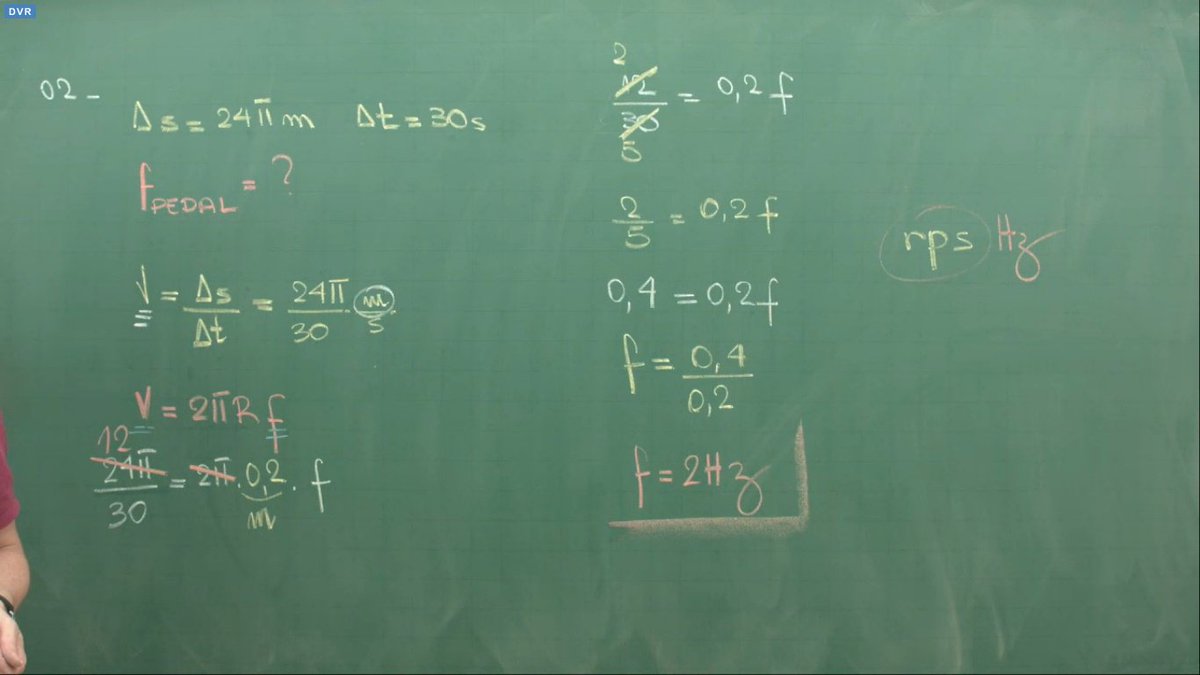 DVR
02-
Δs = 24π m Δt = 30s
f PEDAL = ?
V = Δs/Δt = 24π/30 m/s
V = 2πRf
12
24π/30 = 2π . 0,2 . f
m
2
12/30 = 0,2 f
5
2/5 = 0,2 f
0,4 = 0,2 f
f = 0,4/0,2
f = 2Hz
rps Hz